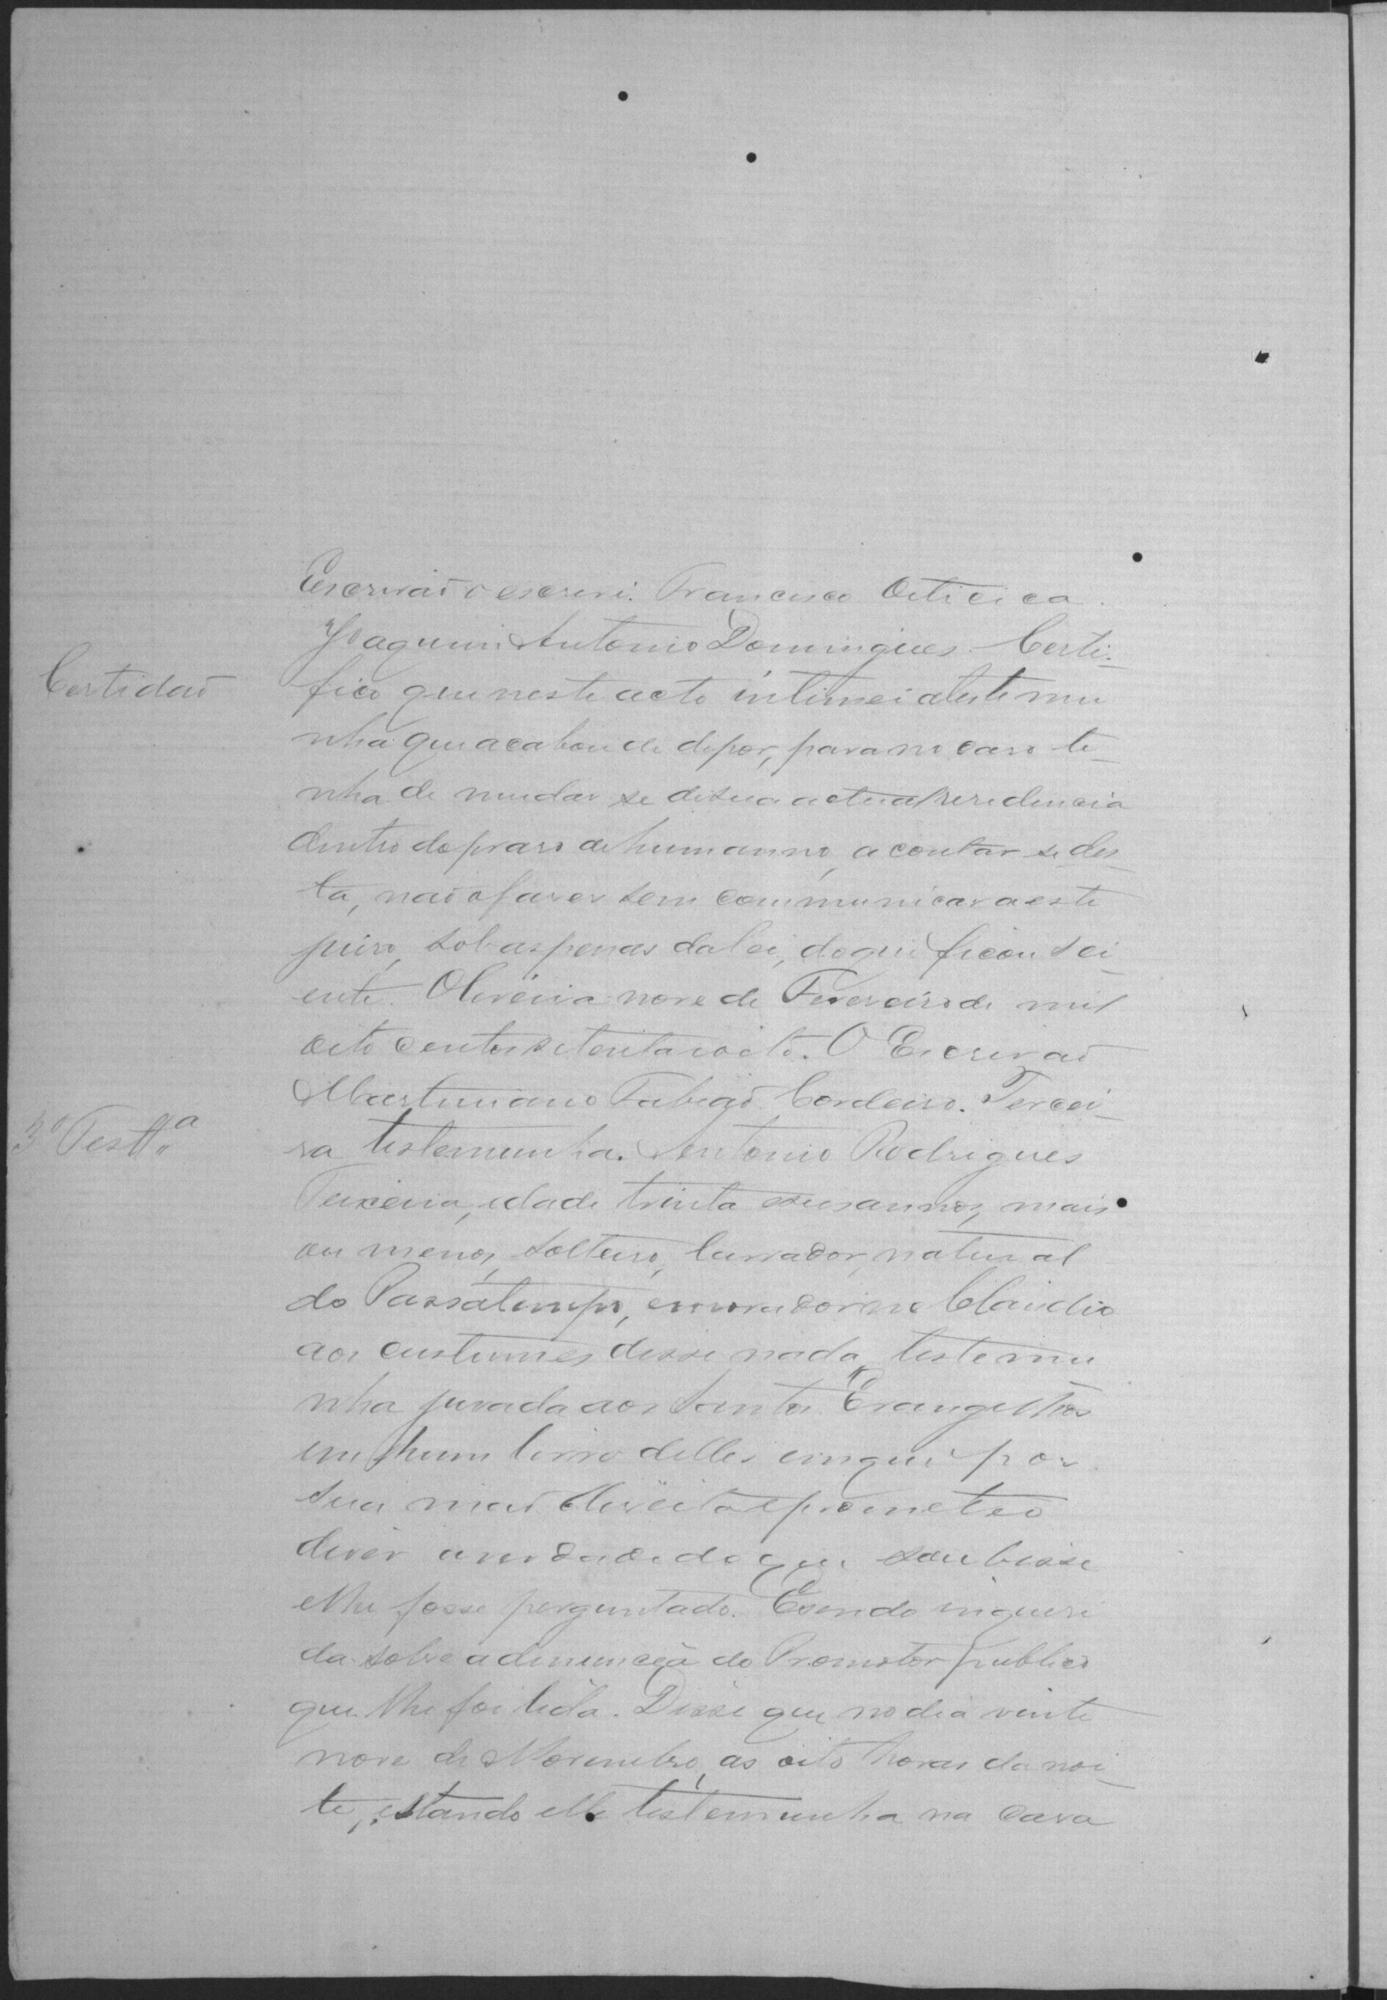 Escrivaõ o escrevi. Francisco Oiticica.
Joaquim Antonio Domingues. Certi-
Certidaõ
fico que neste acto intimei a testemu
nha que acabou de depor, para no caso te-
nha de mudar se de sua actual residencia
dentro do praso de hum anno, a contar se des-
ta, naõ o faser sem communicar a este
juiso, sob as penas da lei, do que ficou sci-
ente. Oliveira nove de Fevereiro de mil
oito centos setenta e oito. O Escrivaõ
Martiniano Cordeiro. Tercei-
3ª Testª
ra testemunha. Antonio Rodrigues
Teixeira, idade trinta annos, mais
ou menos, solteiro, lavrador, natural
do Passatempo, e morador no Claudio
aos custumes disse nada, testemu
nha jurada aos Santos Evangelhos
em hum livro delles em que pos
sua maõ direita e prometeo
diser a verdade do que soubesse
e lhe fosse perguntado. E sendo inqueri
da sobre a denuncia do Promotor publico
que lhe foi lida. Disse que no dia vinte
nove de Novembro, as oito horas da noi-
te, estando elle testemunha na casa